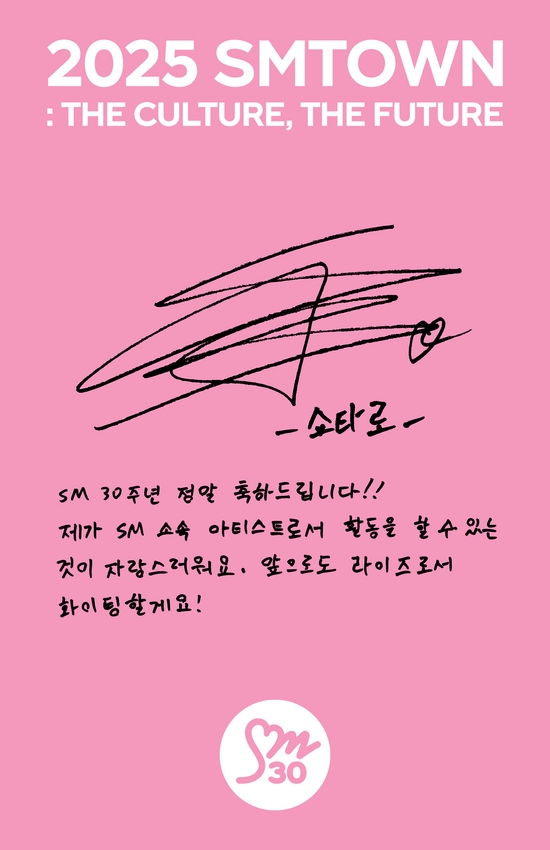 2025 SMTOWN
: THE CULTURE, THE FUTURE
-쇼타로-
SM 30주년 정말 축하드립니다!!
제가 SM 소속 아티스트로서 활동을 할 수 있는
것이 자랑스러워요. 앞으로도 라이즈로서
화이팅할게요!
SM
30